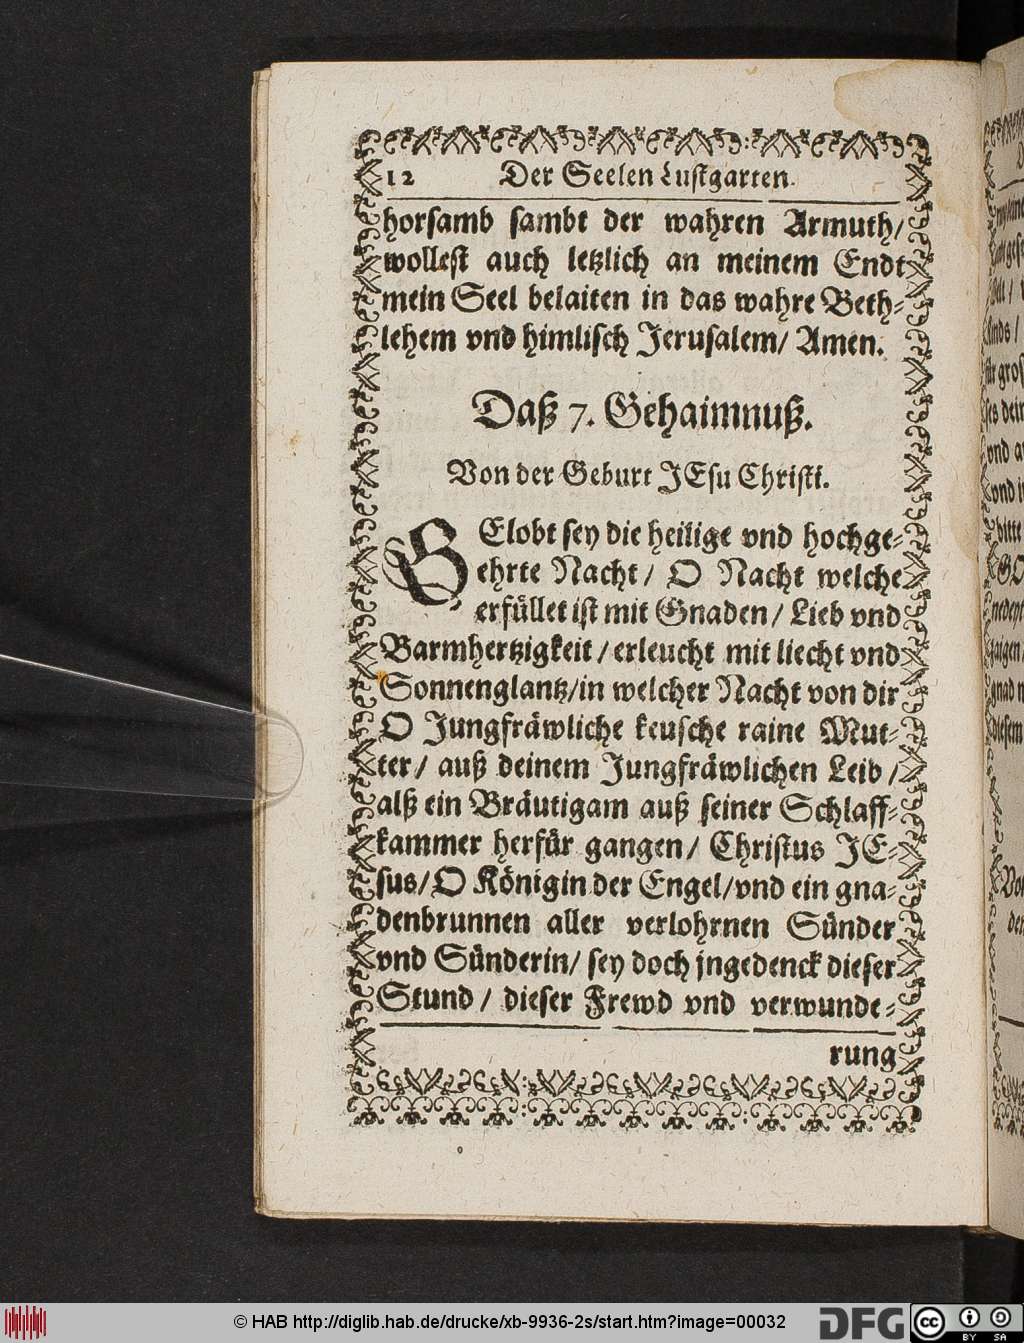 12 Der Seelen Lustgarten.
horsamb sambt der wahren Armuth/
wollest auch letzlich an meinem Endt
mein Seel belaiten in das wahre Beth-
lehem vnd himlisch Jerusalem/ Amen.
Daß 7. Gehaimnuß.
Von der Geburt JEsu Christi.
GElobt sey die heilige vnd hochge-
ehrte Nacht/ O Nacht welche
erfüllet ist mit Gnaden/ Lieb vnd
Barmhertzigkeit/ erleucht mit liecht vnd
Sonnenglantz/ in welcher Nacht von dir
O Jungfräwliche keusche raine Mut-
ter/ auß deinem Jungfräwlichen Leib/
alß ein Bräutigam auß seiner Schlaff-
kammer herfür gangen/ Christus JE-
sus/ O Königin der Engel/ vnd ein gna-
denbrunnen aller verlohrnen Sünder
vnd Sünderin/ sey doch jngedenck dieser
Stund/ dieser Frewd vnd verwunde-
rung
© HAB http://diglib.hab.de/drucke/xb-9936-2s/start.htm?image=00032
DFG
cc BY SA